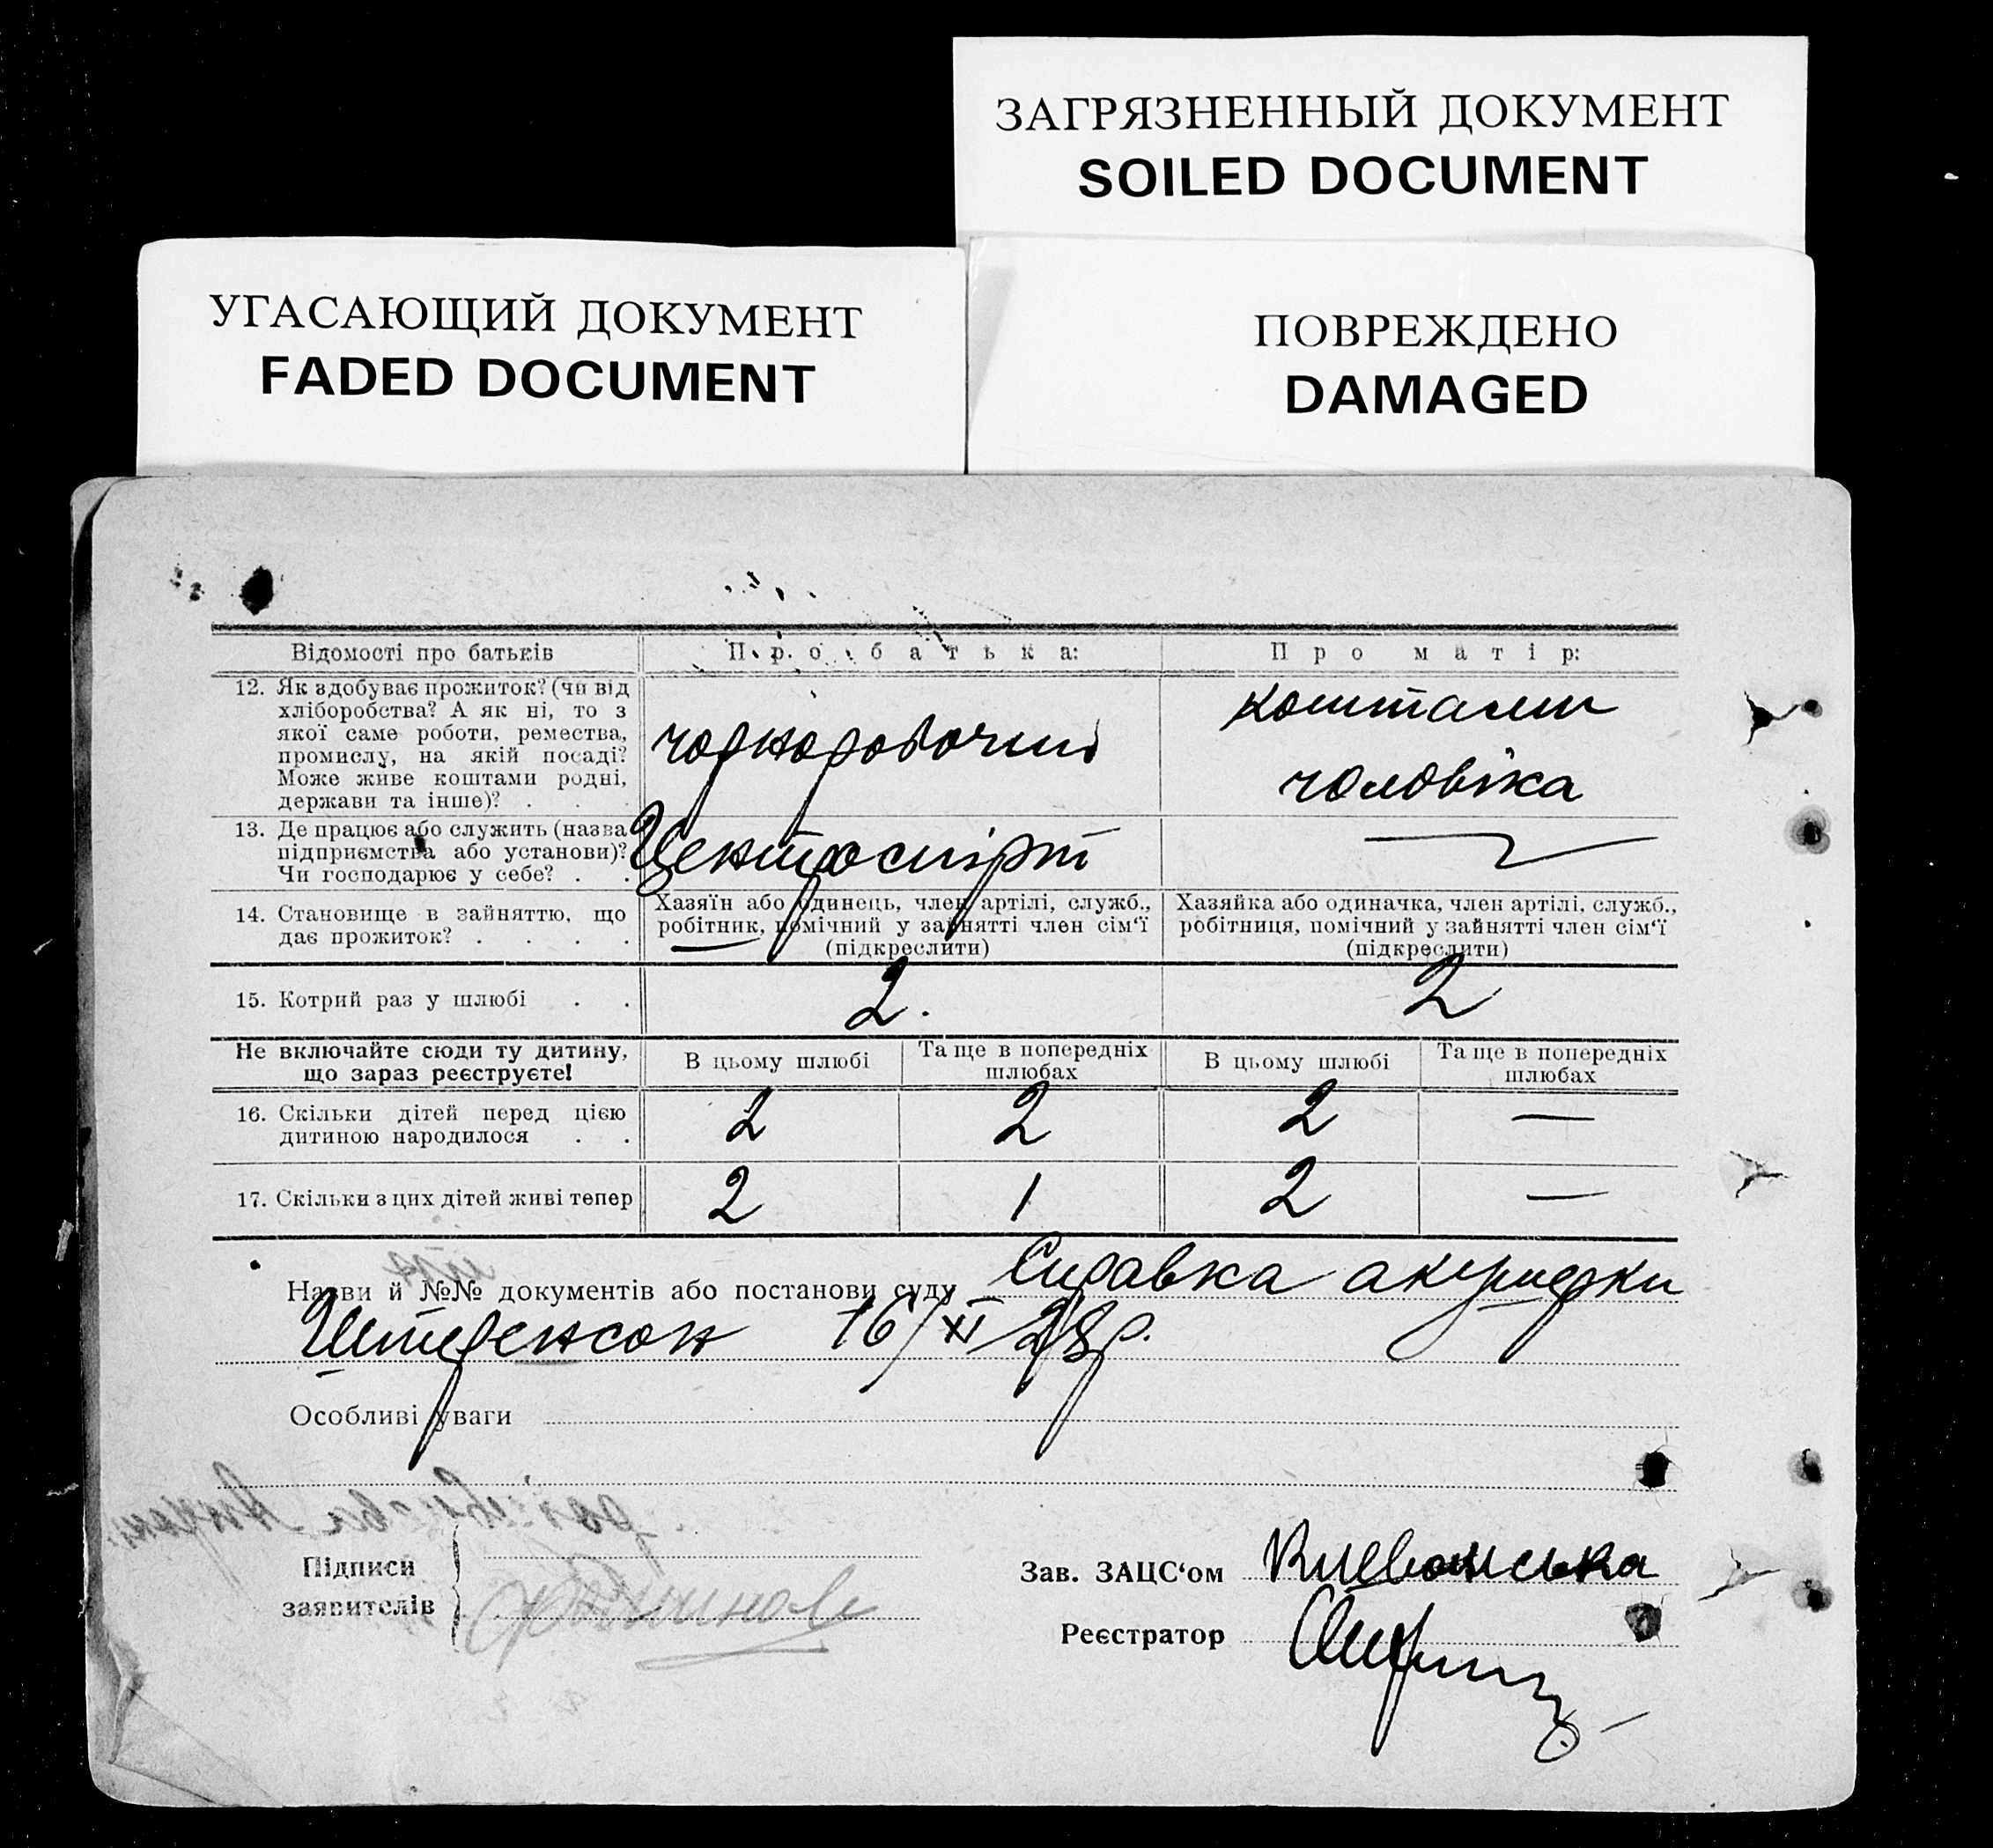 ЗАГРЯЗНЕННЫЙ ДОКУМЕНТ
SOILED DOCUMENT
УГАСАЮЩИЙ ДОКУМЕНТ
FADED DOCUMENT
ПОВРЕЖДЕНО
DAMAGED
Відомості про батьків
Про батька:
Про матір:
12. Як здобуває прожиток? (чи від
хліборобства? А як ні, то з
якої саме роботи, ремества,
промислу, на якій посаді?
Може живе коштами родні,
держави та інше)? . . .
чорноробочий
коштами
чоловіка
13. Де працює або служить (назва
підприємства або установи)?
Чи господарює у себе? . .
Центроспірт
14. Становище в зайняттю, що
дає прожиток? . . . .
Хазяїн або одинець, член артілі, служб.,
робітник, помічний у зайнятті член сім'ї
(підкреслити)
Хазяйка або одиначка, член артілі, служб.,
робітниця, помічний у зайнятті член сім'ї
(підкреслити)
15. Котрий раз у шлюбі . .
2.
2
Не включайте сюди ту дитину,
що зараз реєструєте!
В цьому шлюбі
Та ще в попередніх
шлюбах
В цьому шлюбі
Та ще в попередніх
шлюбах
16. Скільки дітей перед цією
дитиною народилося . .
2
2
2
—
17. Скільки з цих дітей живі тепер
2
1
2
—
Назви й №№ документів або постанови суду Справка акушерки
16/XI 28р.
Особливі уваги
Підписи
заявителів
Зав. ЗАЦС'ом
Реєстратор